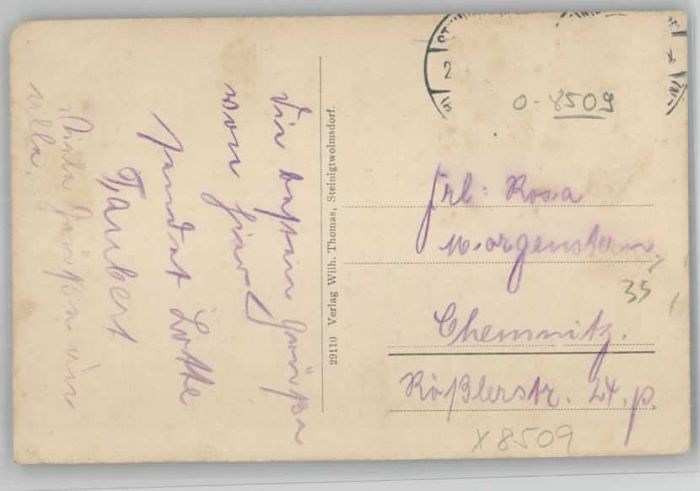 Die besten Grüße
von hier
sendet Lotte
Taubert
Viele Grüße an
alle.
29110 Verlag Wilh. Thomas, Steinigtwolmsdorf.
O-8509
Frl. Rosa
Morgenstern
35
Chemnitz.
Rößlerstr. 24. p.
X8509